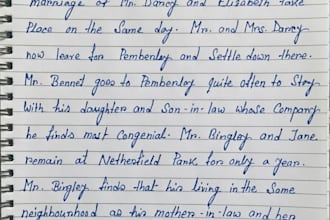 marriage of Mr. Darcy and Elizabeth take
Place on the Same day. Mr. and Mrs. Darcy
now leave for Pemberley and Settle down there.
Mr. Bennet goes to Pemberley quite often to Stay
With his daughter and Son-in-law whose Company
he finds most Congenial. Mr. Bingley and Jane
remain at Netherfield Park for only a year.
Mr. Bigley finds that his living in the Same
neighbourhood as his mother-in-law and her